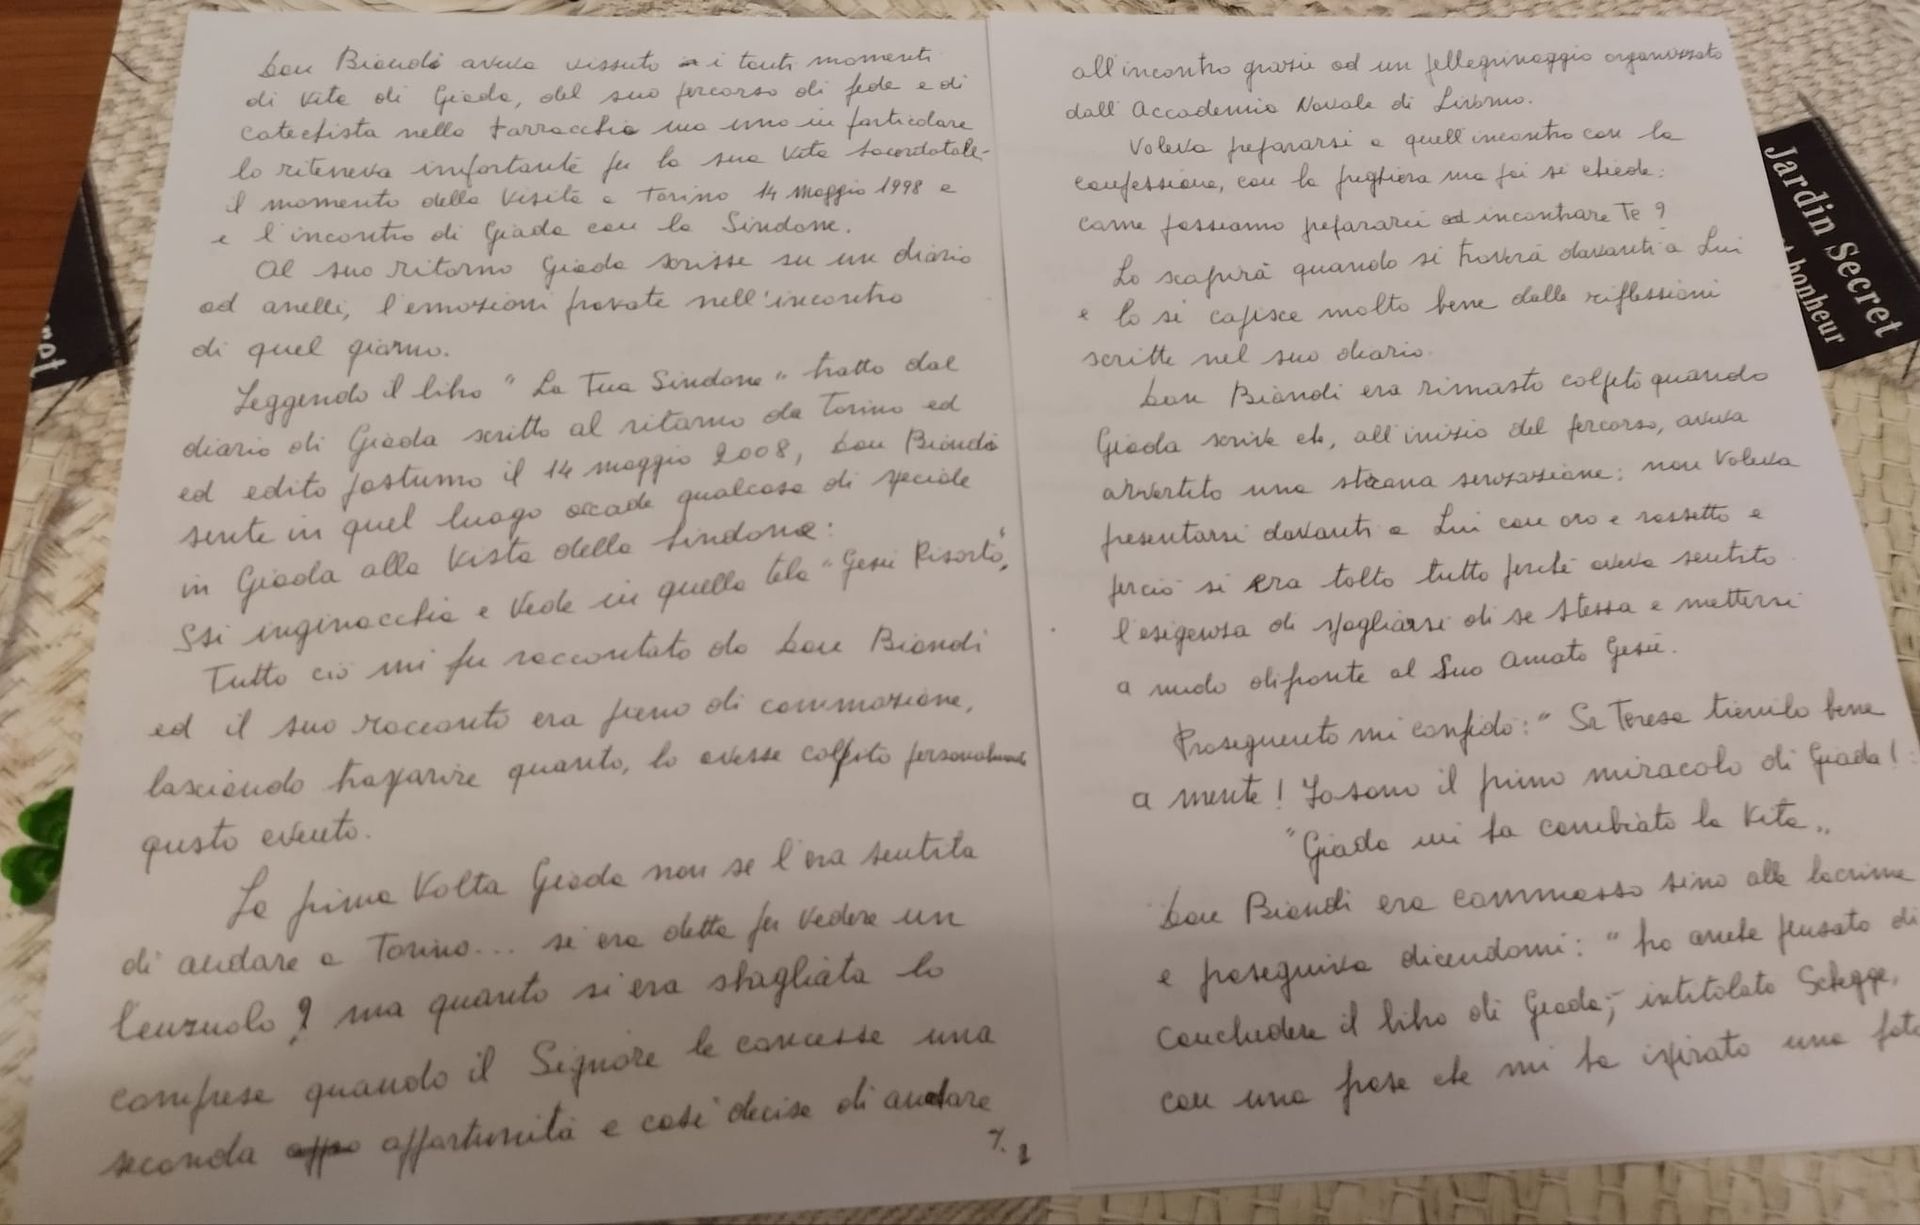 Don Biondi aveva vissuto i tanti momenti
di vita di Giada, del suo percorso di fede e di
catechista nella Parrocchia ma uno in particolare
lo riteneva importante per la sua vita sacerdotale
il momento della visita a Torino 14 maggio 1998 e
e l'incontro di Giada con la Sindone.
Al suo ritorno Giada scrisse su un diario
ad anelli, l'emozioni provate nell'incontro
di quel giorno.
Leggendo il libro "La Tua Sindone" tratto dal
diario di Giada scritto al ritorno da Torino ed
ed edito postumo il 14 maggio 2008, Don Biondi
sente in quel luogo accade qualcosa di speciale
in Giada alla vista della Sindone:
Si inginocchia e vede in quella tela "Gesù Risorto",
Tutto ciò mi fu raccontato da Don Biondi
ed il suo racconto era pieno di commozione,
lasciando trasparire quanto, lo avesse colpito personalmente
questo evento.
La prima volta Giada non se l'era sentita
di andare a Torino... si era detta per vedere un
lenzuolo? ma quanto si era sbagliata lo
comprese quando il Signore le concesse una
seconda opportunità e così decise di andare
all'incontro grazie ad un pellegrinaggio organizzato
dall'Accademia Navale di Livorno.
Voleva prepararsi a quell'incontro con la
confessione, con la preghiera ma poi si chiede:
come possiamo prepararci ad incontrare Te?
Lo scoprirà quando si troverà davanti a Lui
e lo si capisce molto bene dalle riflessioni
scritte nel suo diario.
Don Biondi era rimasto colpito quando
Giada scrive che, all'inizio del percorso, aveva
avvertito una strana sensazione: non voleva
presentarsi davanti a Lui con oro e rossetto e
perciò si era tolto tutto perché aveva sentito
l'esigenza di spogliarsi di se stessa e mettersi
a nudo difronte al Suo Amato Gesù.
Proseguento mi confidò: "Sr Teresa tienilo bene
a mente! Io sono il primo miracolo di Giada!
"Giada mi ha cambiato la vita"
Don Biondi era commosso sino alle lacrime
e proseguiva dicendomi: "ho anche pensato di
concludere il libro di Giada, intitolato Schegge,
con una frase che mi ha ispirato una foto
Jardin Secret
bonheur